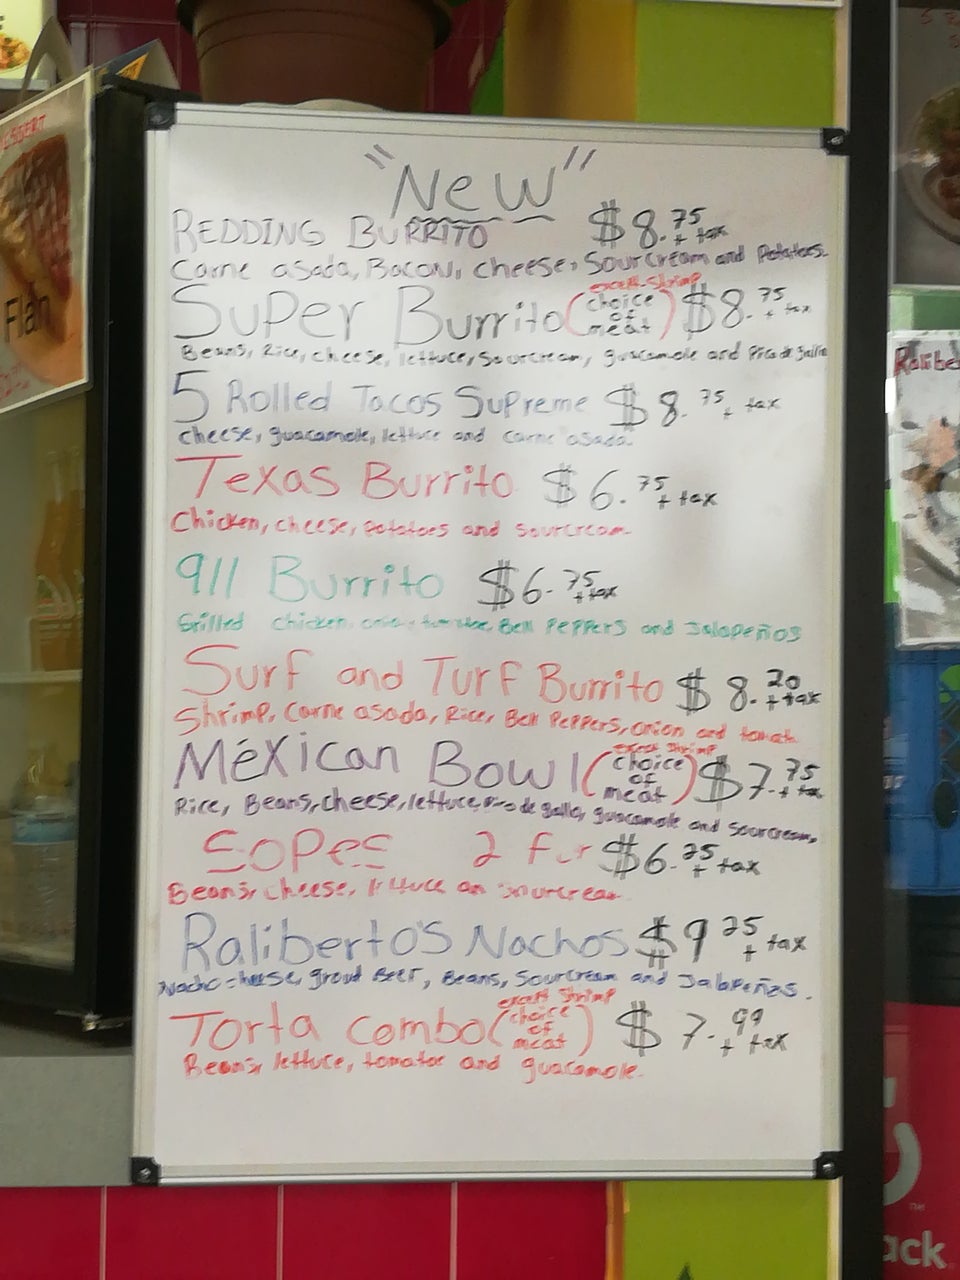 "New"
REDDING BURRITO $8.75 + tax
Carne asada, Bacon, cheese, Sourcream and Potatoes.
except Shrimp
Super Burrito (choice of meat) $8.75 + tax
Beans, Rice, cheese, lettuce, Sourcream, guacamole and Pico de gallo
5 Rolled Tacos Supreme $8.75 + tax
cheese, guacamole, lettuce and carne asada.
Texas Burrito $6.75 + tax
Chicken, cheese, Potatoes and sourcream
911 Burrito $6.75 + tax
Grilled chicken, Bell Peppers and Jalapeños
Surf and Turf Burrito $8.20 + tax
Shrimp, Carne asada, Rice, Bell Peppers, onion and
except Shrimp
Mexican Bowl (choice of meat) $7.75 + tax
Rice, Beans, cheese, lettuce, Pico de gallo, guacamole and sourcream,
Sopes 2 for $6.75 + tax
Beans, cheese, lettuce an sourcream
Raliberto's Nachos $9.25 + tax
Nacho cheese, Beef, Beans, Sourcream and Jalapeños.
except Shrimp
Torta combo (choice of meat) $7.99 + tax
Beans, lettuce, tomatoe and guacamole.
Flan
Ralibe
ack